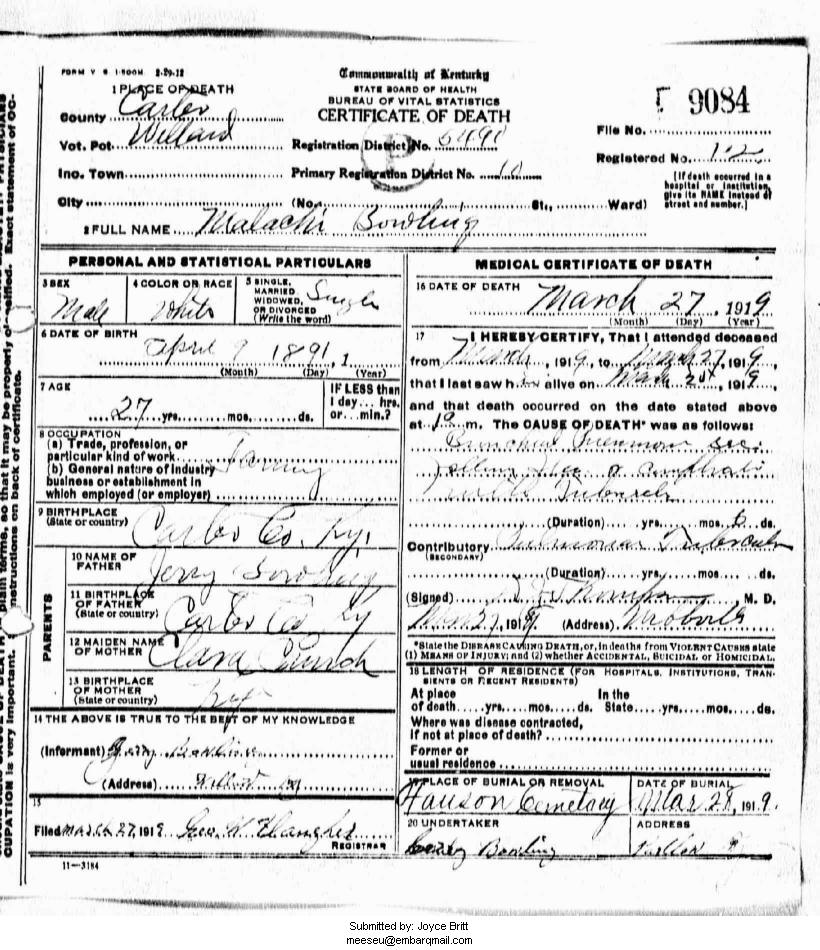 FORM V S 1-500M 2-29-12
Commonwealth of Kentucky
STATE BOARD OF HEALTH
BUREAU OF VITAL STATISTICS
CERTIFICATE OF DEATH
9084
1 PLACE OF DEATH
County Carter
Vot. Pct. Willard
Inc. Town
City
Registration District No.
Primary Registration District No. 10
(No. St., Ward)
File No.
Registered No. 12
[If death occurred in a
hospital or institution,
give its NAME instead of
street and number.]
2 FULL NAME Malachi Bowling
PERSONAL AND STATISTICAL PARTICULARS
3 SEX
Male
4 COLOR OR RACE
White
5 SINGLE,
MARRIED,
WIDOWED,
OR DIVORCED
(Write the word)
Single
6 DATE OF BIRTH
April 9 1891, 1
(Month) (Day) (Year)
7 AGE
27 yrs. mos. ds.
IF LESS than
1 day... hrs.
or... min.?
8 OCCUPATION
(a) Trade, profession, or
particular kind of work
(b) General nature of industry
business or establishment in
which employed (or employer)
Farming
9 BIRTHPLACE
(State or country)
Carter Co. Ky.
PARENTS
10 NAME OF
FATHER
Jerry Bowling
11 BIRTHPLACE
OF FATHER
(State or country)
Carter Co Ky
12 MAIDEN NAME
OF MOTHER
Clara
13 BIRTHPLACE
OF MOTHER
(State or country)
Ky
14 THE ABOVE IS TRUE TO THE BEST OF MY KNOWLEDGE
(Informant) Jerry Bowling
(Address) Willard Ky
15
Filed March 27, 1919 Geo. W.
REGISTRAR
11-3184
MEDICAL CERTIFICATE OF DEATH
16 DATE OF DEATH
March 27, 1919
(Month) (Day) (Year)
17 I HEREBY CERTIFY, That I attended deceased
from March, 1919, to March 27, 1919,
that I last saw h alive on March, 1919,
and that death occurred on the date stated above
at m. The CAUSE OF DEATH* was as follows:
(Duration) yrs. mos. ds.
Contributory Pulmonary
(SECONDARY)
(Duration) yrs. mos. ds.
(Signed) M. D.
Mar 27, 1919 (Address)
*State the DISEASE CAUSING DEATH, or, in deaths from VIOLENT CAUSES state
(1) MEANS OF INJURY; and (2) whether ACCIDENTAL, SUICIDAL or HOMICIDAL.
18 LENGTH OF RESIDENCE (FOR HOSPITALS, INSTITUTIONS, TRAN-
SIENTS OR RECENT RESIDENTS)
At place In the
of death yrs. mos. ds. State yrs. mos. ds.
Where was disease contracted,
if not at place of death?
Former or
usual residence
19 PLACE OF BURIAL OR REMOVAL
Cemetary
DATE OF BURIAL
Mar 28, 1919.
20 UNDERTAKER
Bowling
ADDRESS
Submitted by: Joyce Britt
meeseu@embarqmail.com